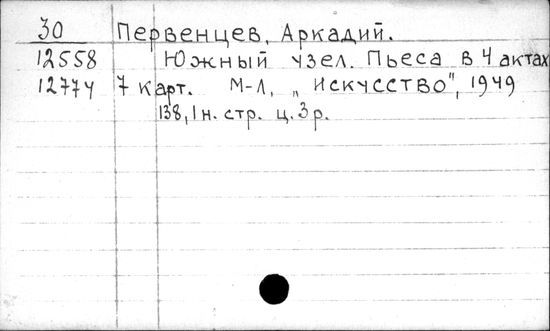 30 Первенцев, Аркадий.
12558 Южный узел. Пьеса в 4 актах
12774 7 карт. М-Л, „Искусство", 1949
138, 1 н. стр. ц. 3 р.